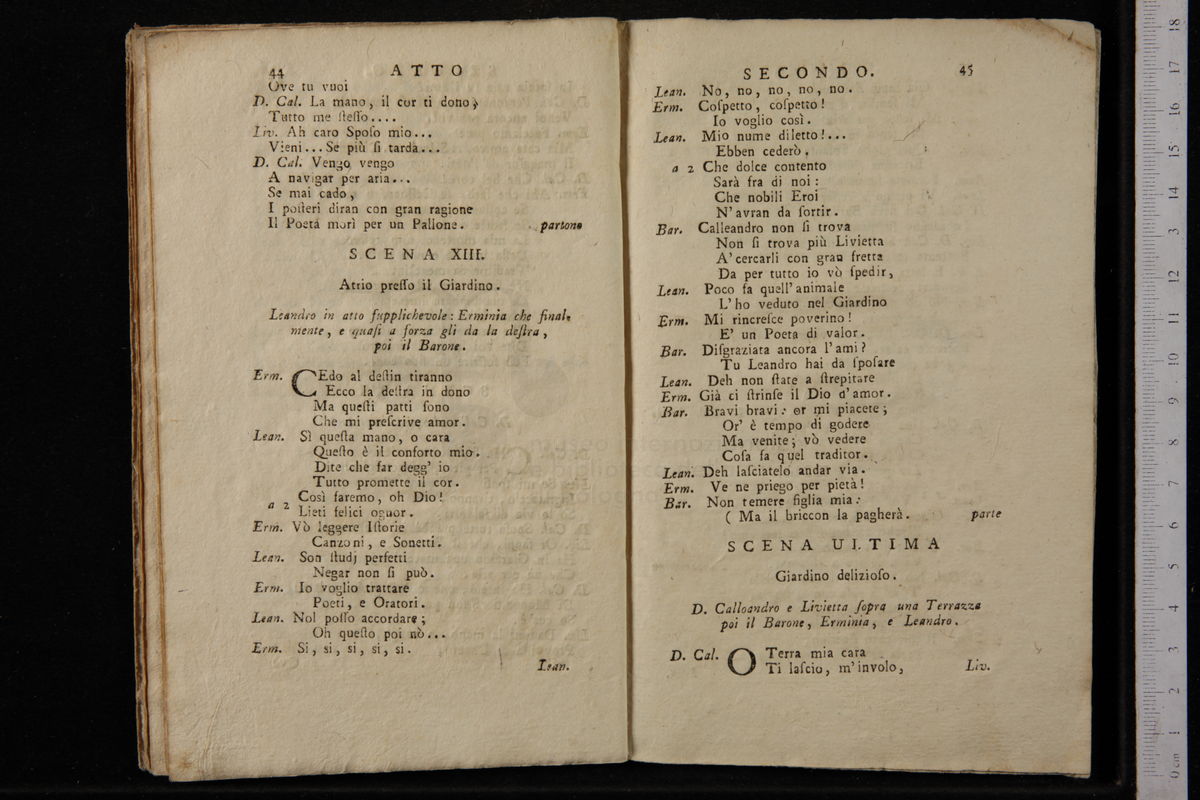 44 ATTO
Ove tu vuoi
D. Cal. La mano, il cor ti dono,
Tutto me ſteſſo....
Liv. Ah caro Spoſo mio...
Vieni... Se più ſi tarda...
D. Cal. Vengo vengo
A navigar per aria...
Se mai cado,
I poſteri diran con gran ragione
Il Poeta morì per un Pallone. partono
SCENA XIII.
Atrio preſſo il Giardino.
Leandro in atto ſupplichevole: Erminia che final-
mente, e quaſi a forza gli da la deſtra,
poi il Barone.
Erm. CEdo al deſtin tiranno
Ecco la deſtra in dono
Ma queſti patti ſono
Che mi preſcrive amor.
Lean. Sì queſta mano, o cara
Queſto è il conforto mio.
Dite che far degg' io
Tutto promette il cor.
a 2 Così faremo, oh Dio!
Lieti felici ognor.
Erm. Vò leggere Iſtorie
Canzoni, e Sonetti.
Lean. Son ſtudj perfetti
Negar non ſi può.
Erm. Io voglio trattare
Poeti, e Oratori.
Lean. Nol poſſo accordare;
Oh queſto poi nò...
Erm. Si, si, si, si, si.
Lean.
SECONDO. 45
Lean. No, no, no, no, no.
Erm. Coſpetto, coſpetto!
Io voglio così.
Lean. Mio nume diletto!...
Ebben cederò.
a 2 Che dolce contento
Sarà fra di noi:
Che nobili Eroi
N'avran da ſortir.
Bar. Calleandro non ſi trova
Non ſi trova più Livietta
A'cercarli con gran fretta
Da per tutto io vò ſpedir,
Lean. Poco fa quell'animale
L'ho veduto nel Giardino
Erm. Mi rincreſce poverino!
E' un Poeta di valor.
Bar. Diſgraziata ancora l'ami?
Tu Leandro hai da ſpoſare
Lean. Deh non ſtate a ſtrepitare
Erm. Già ci ſtrinſe il Dio d'amor.
Bar. Bravi bravi: or mi piacete;
Or' è tempo di godere
Ma venite; vò vedere
Coſa fa quel traditor.
Lean. Deh laſciatelo andar via.
Erm. Ve ne priego per pietà!
Bar. Non temere figlia mia:
( Ma il briccon la pagherà. parte
SCENA ULTIMA
Giardino delizioſo.
D. Calloandro e Livietta ſopra una Terrazza
poi il Barone, Erminia, e Leandro.
D. Cal. O Terra mia cara
Ti laſcio, m'involo,
Liv.